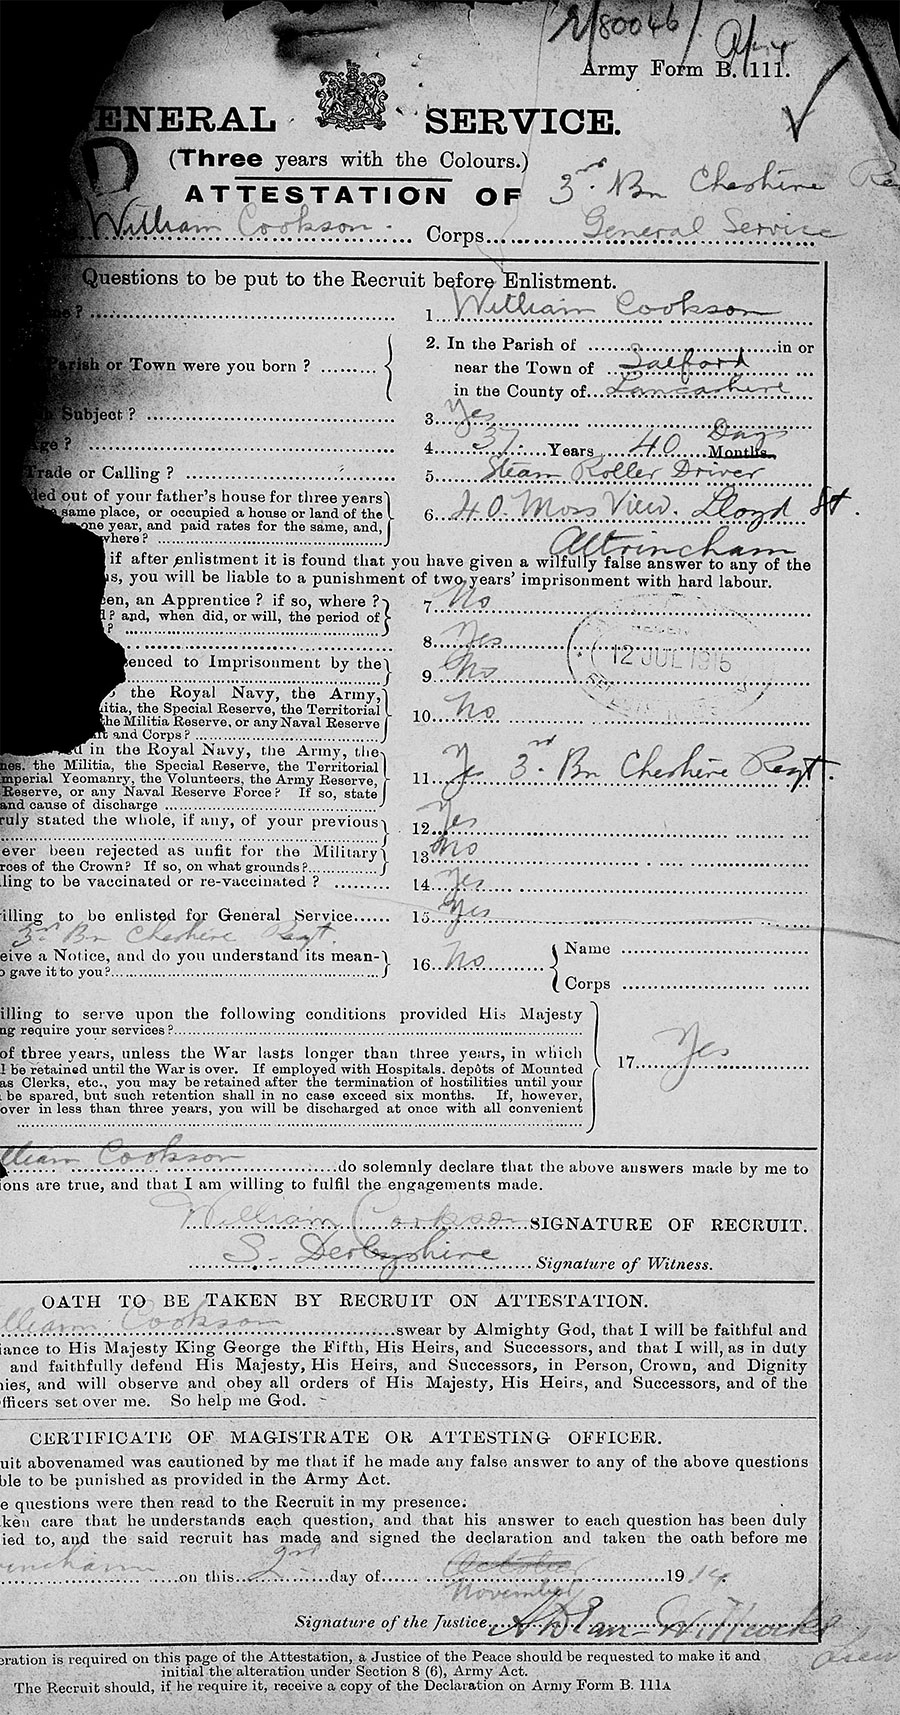 R/80046/
Army Form B. 111.
ENERAL SERVICE.
(Three years with the Colours.)
ATTESTATION OF 3rd. Bn Cheshire Re
William Cookson. Corps General Service
Questions to be put to the Recruit before Enlistment.
me ? 1 William Cookson
2. In the Parish of in or
Parish or Town were you born ? near the Town of Salford
in the County of Lancashire
Subject ? 3. Yes
Age ? 4. 37. Years 40 Days Months.
Trade or Calling ? 5 Steam Roller Driver
ded out of your father's house for three years
same place, or occupied a house or land of the
one year, and paid rates for the same, and, 6 40. Moss View. Lloyd St.
where ? Altrincham
if after enlistment it is found that you have given a wilfully false answer to any of the
ns, you will be liable to a punishment of two years' imprisonment with hard labour.
een, an Apprentice ? if so, where ? 7 No
d ? and, when did, or will, the period of
?
8. Yes
12 JUL 1915
enced to Imprisonment by the 9. No
the Royal Navy, the Army,
litia, the Special Reserve, the Territorial
the Militia Reserve, or any Naval Reserve 10. No
nt and Corps ?
ed in the Royal Navy, the Army, the
nes, the Militia, the Special Reserve, the Territorial
Imperial Yeomanry, the Volunteers, the Army Reserve, 11. Yes 3rd. Bn Cheshire Regt.
Reserve, or any Naval Reserve Force ? If so, state
and cause of discharge
ruly stated the whole, if any, of your previous 12. Yes
ever been rejected as unfit for the Military 13. No
rces of the Crown ? If so, on what grounds ?
ling to be vaccinated or re-vaccinated ? 14. Yes
illing to be enlisted for General Service 15. Yes
3rd Bn Cheshire Regt.
eive a Notice, and do you understand its mean- 16 No Name
o gave it to you ? Corps
illing to serve upon the following conditions provided His Majesty
ng require your services ?
of three years, unless the War lasts longer than three years, in which
l be retained until the War is over. If employed with Hospitals, depôts of Mounted 17. Yes
as Clerks, etc., you may be retained after the termination of hostilities until your
be spared, but such retention shall in no case exceed six months. If, however,
over in less than three years, you will be discharged at once with all convenient
lliam Cookson do solemnly declare that the above answers made by me to
ions are true, and that I am willing to fulfil the engagements made.
William Cookson SIGNATURE OF RECRUIT.
S. Derbyshire Signature of Witness.
OATH TO BE TAKEN BY RECRUIT ON ATTESTATION.
illiam Cookson swear by Almighty God, that I will be faithful and
iance to His Majesty King George the Fifth, His Heirs, and Successors, and that I will, as in duty
and faithfully defend His Majesty, His Heirs, and Successors, in Person, Crown, and Dignity
nies, and will observe and obey all orders of His Majesty, His Heirs, and Successors, and of the
fficers set over me. So help me God.
CERTIFICATE OF MAGISTRATE OR ATTESTING OFFICER.
uit abovenamed was cautioned by me that if he made any false answer to any of the above questions
ble to be punished as provided in the Army Act.
e questions were then read to the Recruit in my presence.
ken care that he understands each question, and that his answer to each question has been duly
ied to, and the said recruit has made and signed the declaration and taken the oath before me
rincham on this 2nd day of October 1914.
November
Signature of the Justice
eration is required on this page of the Attestation, a Justice of the Peace should be requested to make it and
initial the alteration under Section 8 (6), Army Act.
The Recruit should, if he require it, receive a copy of the Declaration on Army Form B. 111A